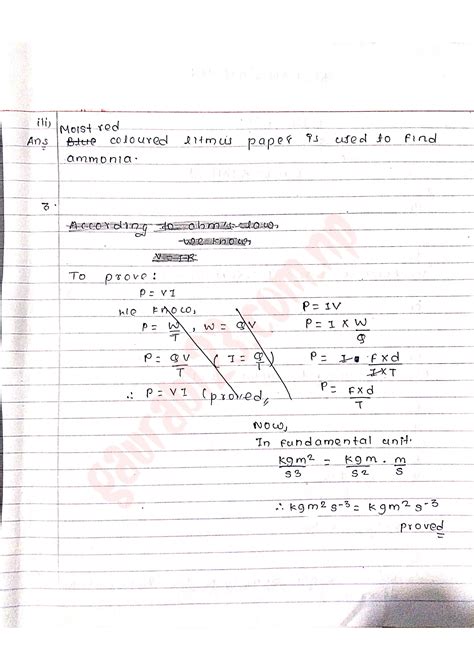 iii) Moist red
Ans Blue coloured litmus paper is used to find
ammonia.
3.
According to ohm's law,
we know
V=IR
To prove:
P = VI
We know,
P = W/T , W = QV
P = QV/T ( I = Q/T )
∴ P = VI (proved)
P = IV
P = I × W/Q
P = I . F×d/I×T
P = F×d/T
Now,
In fundamental unit.
kgm²/s3 = kgm/s2 . m/s
∴ kgm²s⁻³ = kgm²s⁻³
proved
gaurab123.com.np